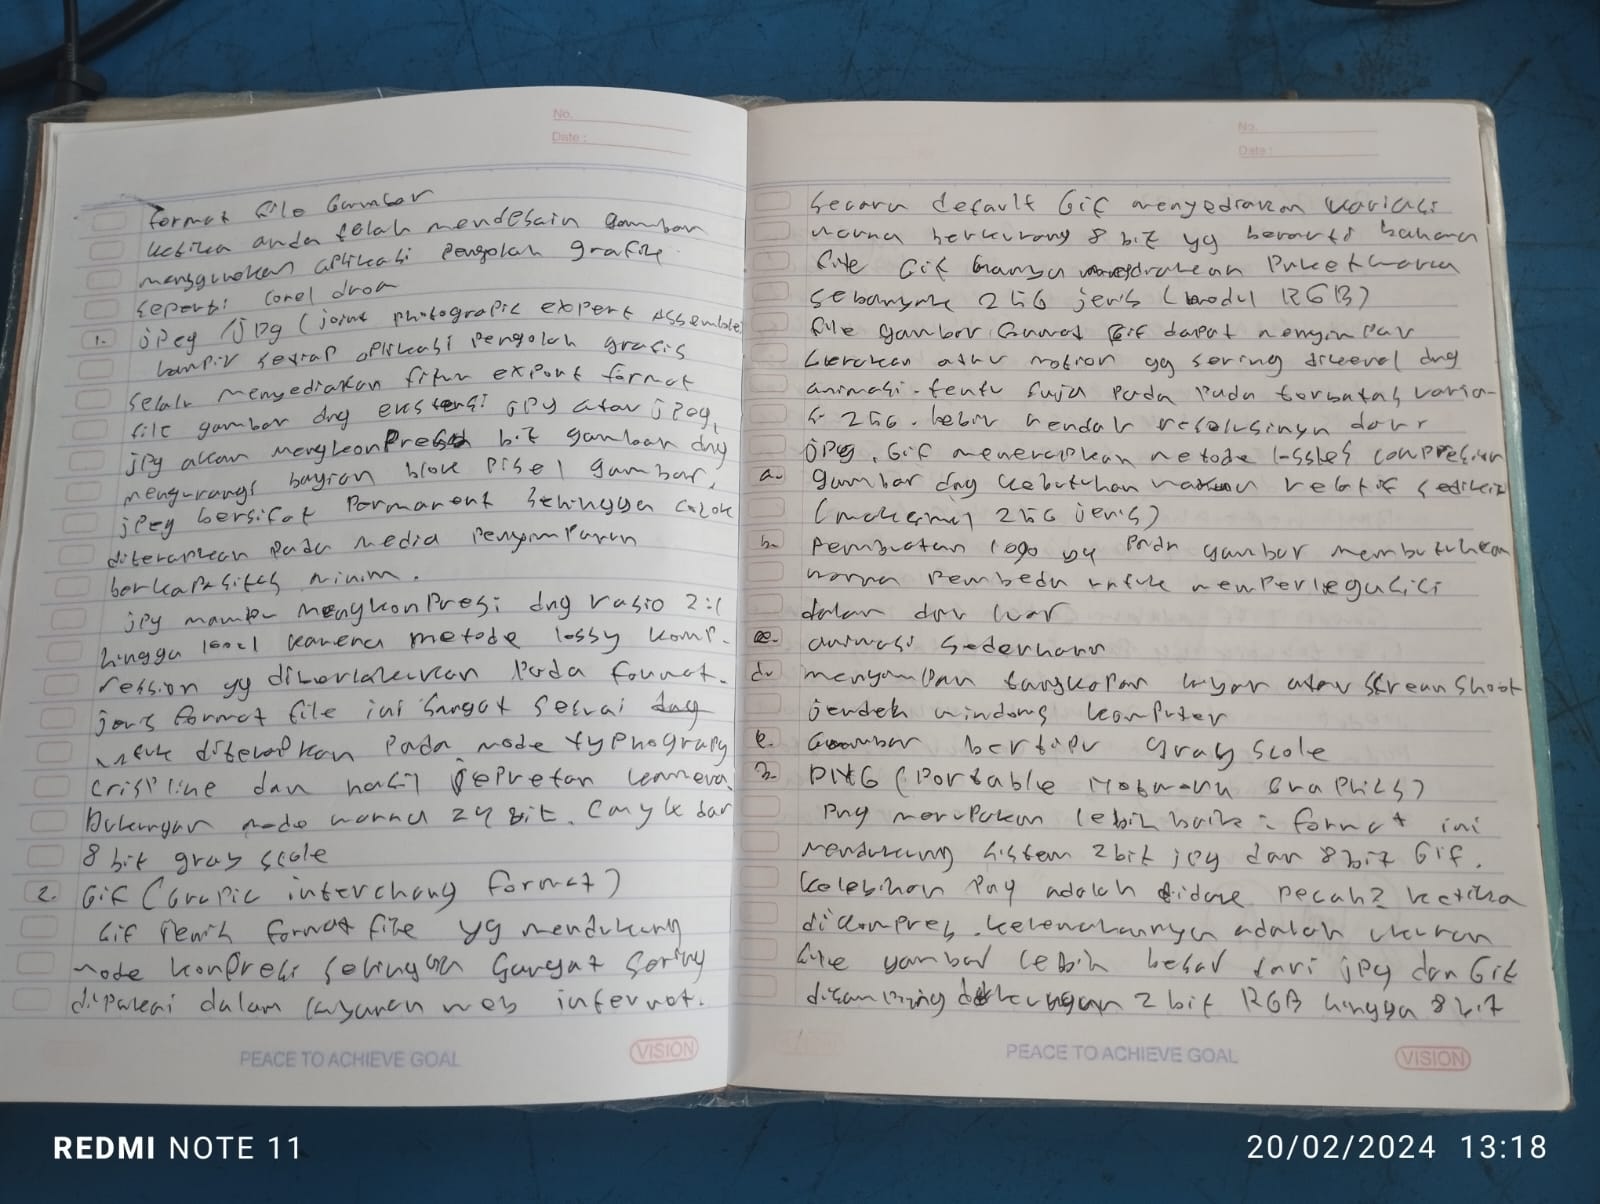 No.
Date:
Format file Gambar
ketika anda telah mendesain gambar
menggunakan aplikasi pengolah grafik
seperti Corel draw
1. jpeg /jpg (joint photograpic expert Assemble
hampir setiap aplikasi pengolah grafis
selalu menyediakan fitur export format
file gambar dng ekstensi jpg atau jpeg,
jpg akan mengkonpres bit gambar dng
mengurangi bagian blok pixel gambar,
jpeg bersifat permanent sehingga cocok
diterapkan pada media penyimpanan
berkapasitas minim.
jpg mampu mengkonpresi dng rasio 2:1
hingga 100:1 karena metode lossy komp-
ression yg diberlakukan pada format.
jenis format file ini sangat sesuai dng
untuk diterapkan pada mode typhograpy
crispline dan hasil jepretan kamera.
Dukungan mode warna 24 bit. Cmyk dan
8 bit gray scale
2. Gif (Grapic interchang format)
Gif jenis format file yg mendukung
mode konpresi sehingga sangat sering
dipakai dalam layanan web internet.
PEACE TO ACHIEVE GOAL
VISION
No.
Date:
Secara default Gif menyediakan variasi
warna berkurang 8 bit yg berarti bahwa
file Gif hanya paket warna
sebanyak 256 jenis (model RGB)
file gambar format Gif dapat menyimpan
Gerakan atau motion yg sering dikenal dng
animasi. tentu saja pada pada terbatas varia-
si 256. lebih rendah resolusinya dari
jpg. Gif menerapkan metode lossles compresion
a. gambar dng kebutuhan warna relatif sedikit
(maksimal 256 jenis)
b. pembuatan logo yg pada gambar membutuhkan
warna pembeda untuk
dalam dan luar
c. animasi sederhana
d. menyimpan tangkapan layar atau Screanshoot
jendela windows komputer
e. Gambar bertipe gray scole
3. PNG (Portable Graphics)
Png merupakan lebih baik: format ini
mendukung sistem 2bit jpg dan 8bit Gif.
kelebihan Png adalah tidak pecah2 ketika
dikonpres. kelemahannya adalah ukuran
file gambar lebih besar dari jpg dan Gif
disamping dukungan 2 bit RGB hingga 8 bit
PEACE TO ACHIEVE GOAL
VISION
REDMI NOTE 11
20/02/2024 13:18